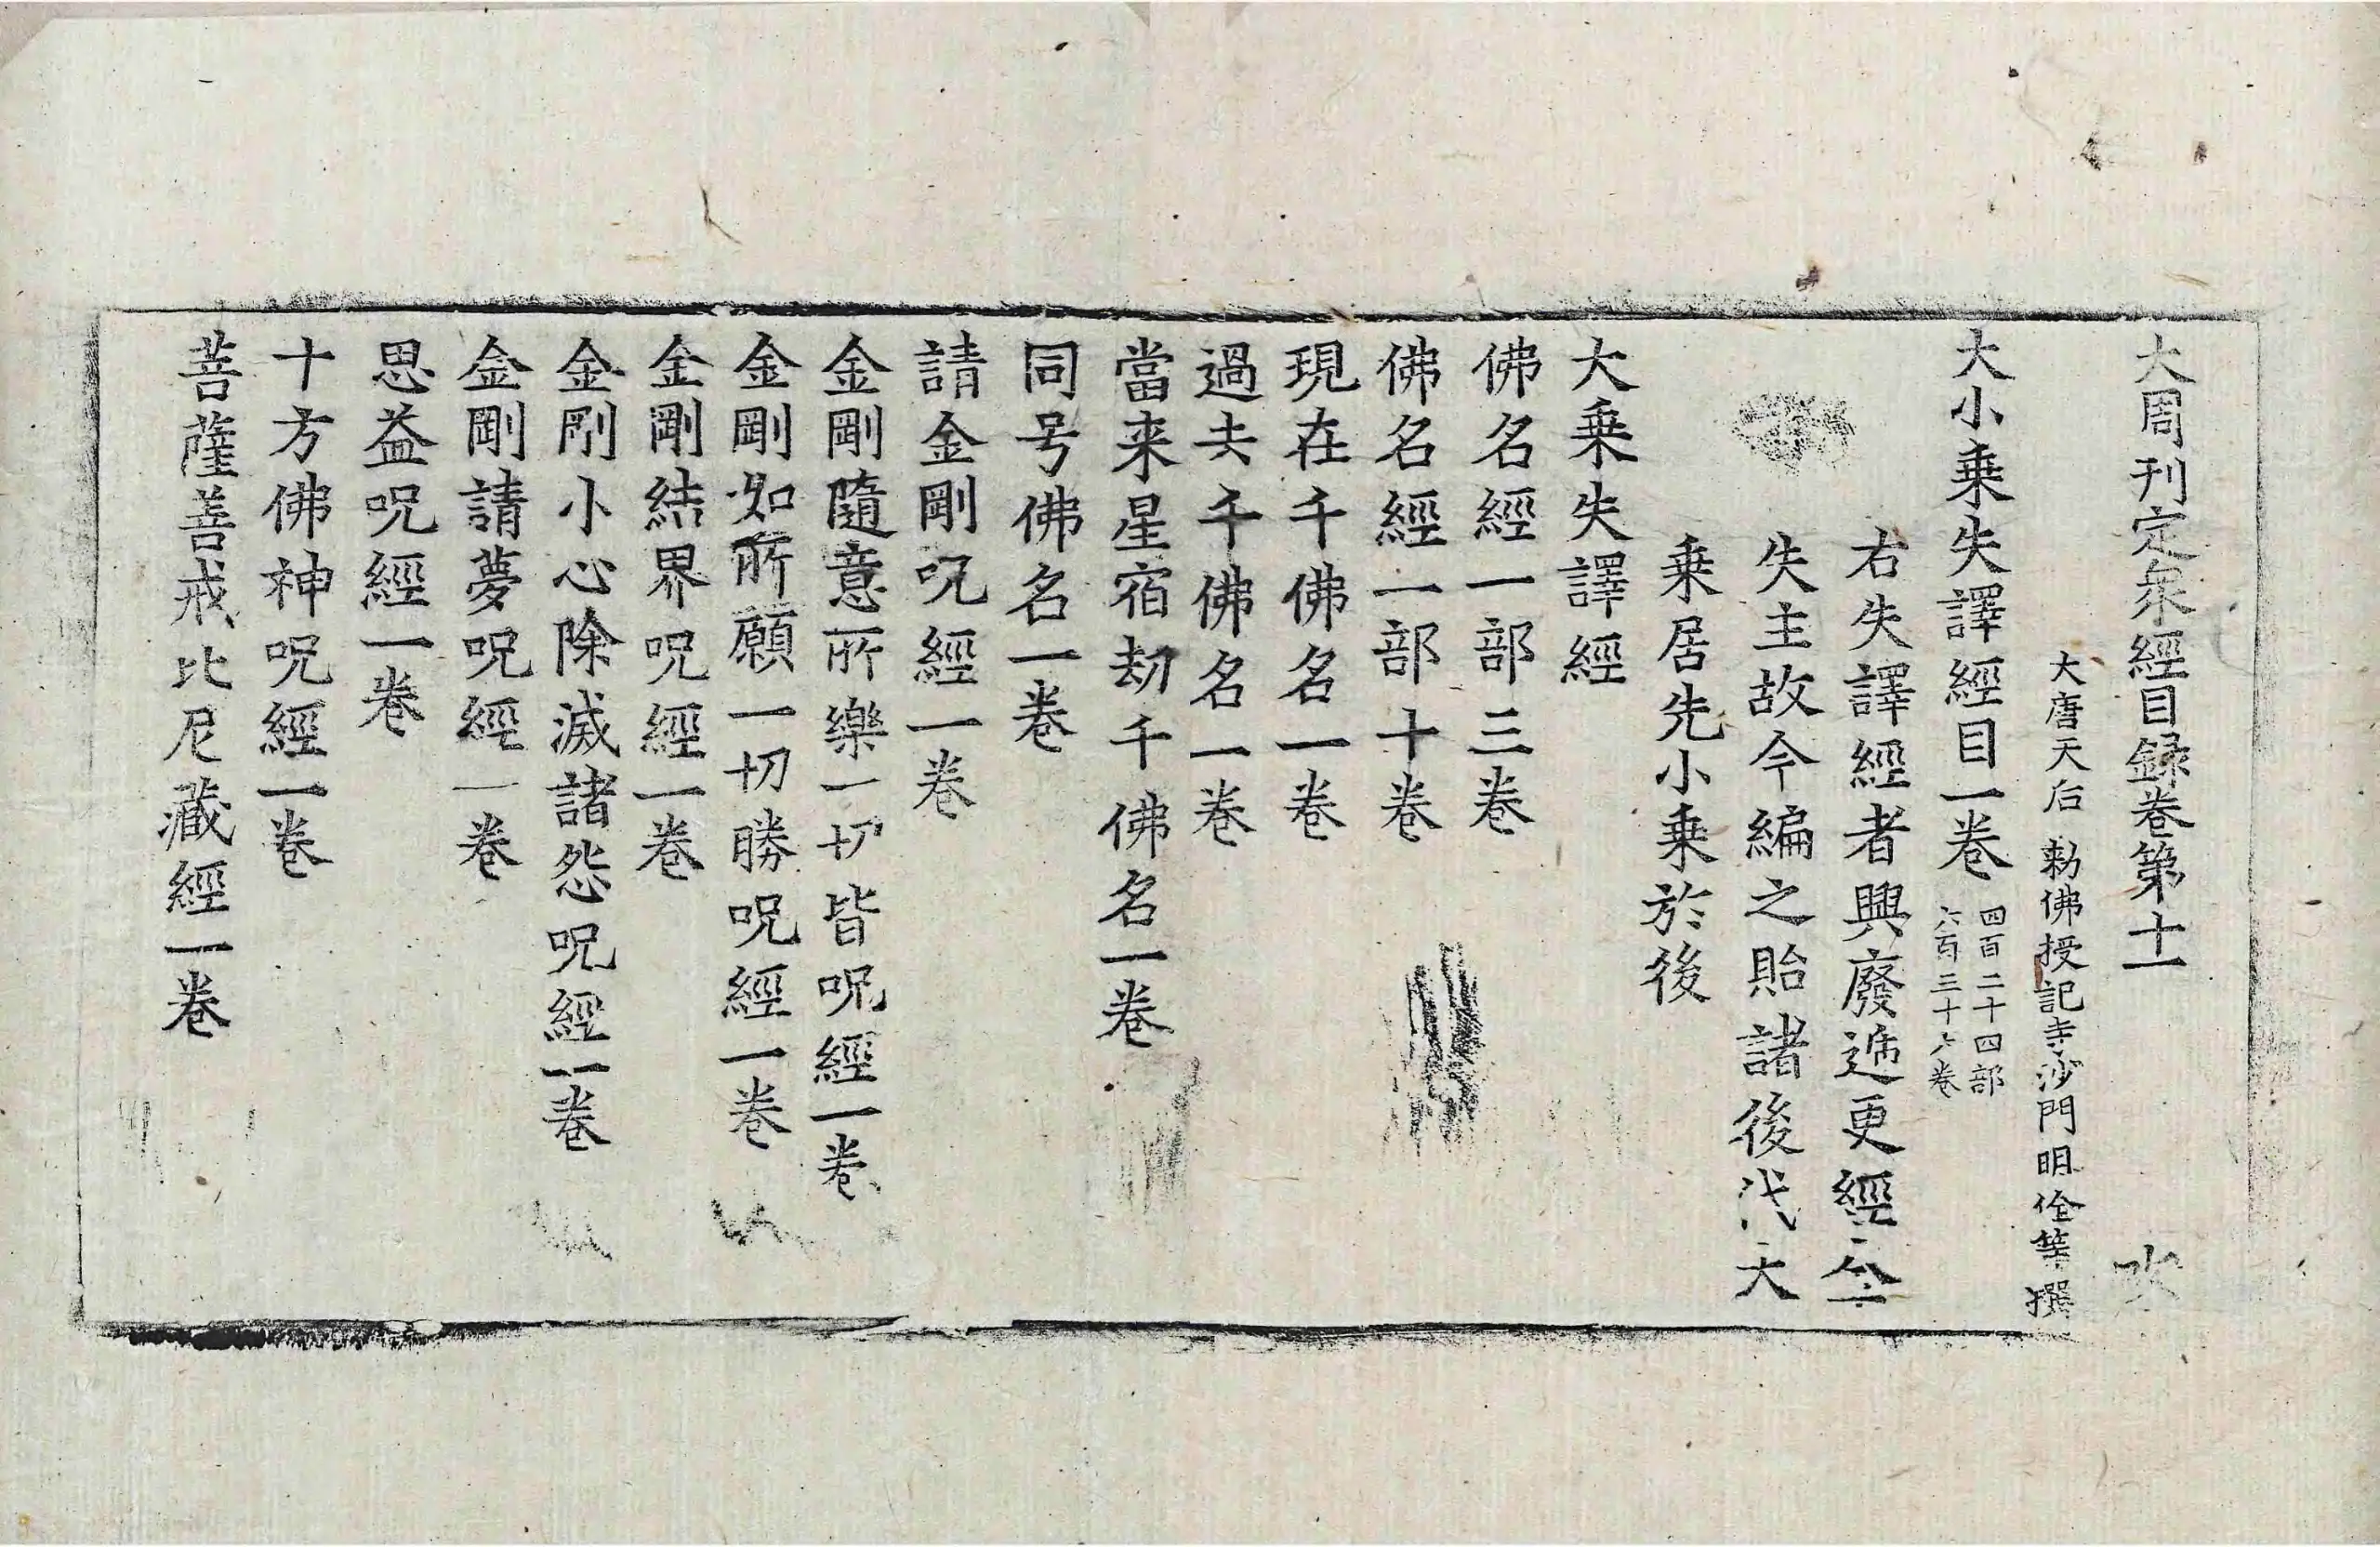 大周刊定衆經目録卷第十一
大唐天后 勅佛授記寺沙門明佺等撰
大小乗失譯經目一卷 四百二十四部
六百三十六卷
右失譯經者興廢遞更經今
失主故今編之貽諸後代大
乗居先小乗於後
大乗失譯經
佛名經一部三卷
佛名經一部十卷
現在千佛名一卷
過去千佛名一卷
當来星宿劫千佛名一卷
同号佛名一卷
請金剛呪經一卷
金剛隨意所樂一切皆呪經一卷
金剛如所願一切勝呪經一卷
金剛結界呪經一卷
金剛小心除滅諸怨呪經一卷
金剛請夢呪經一卷
思益呪經一卷
十方佛神呪經一卷
菩薩善戒比尼藏經一卷